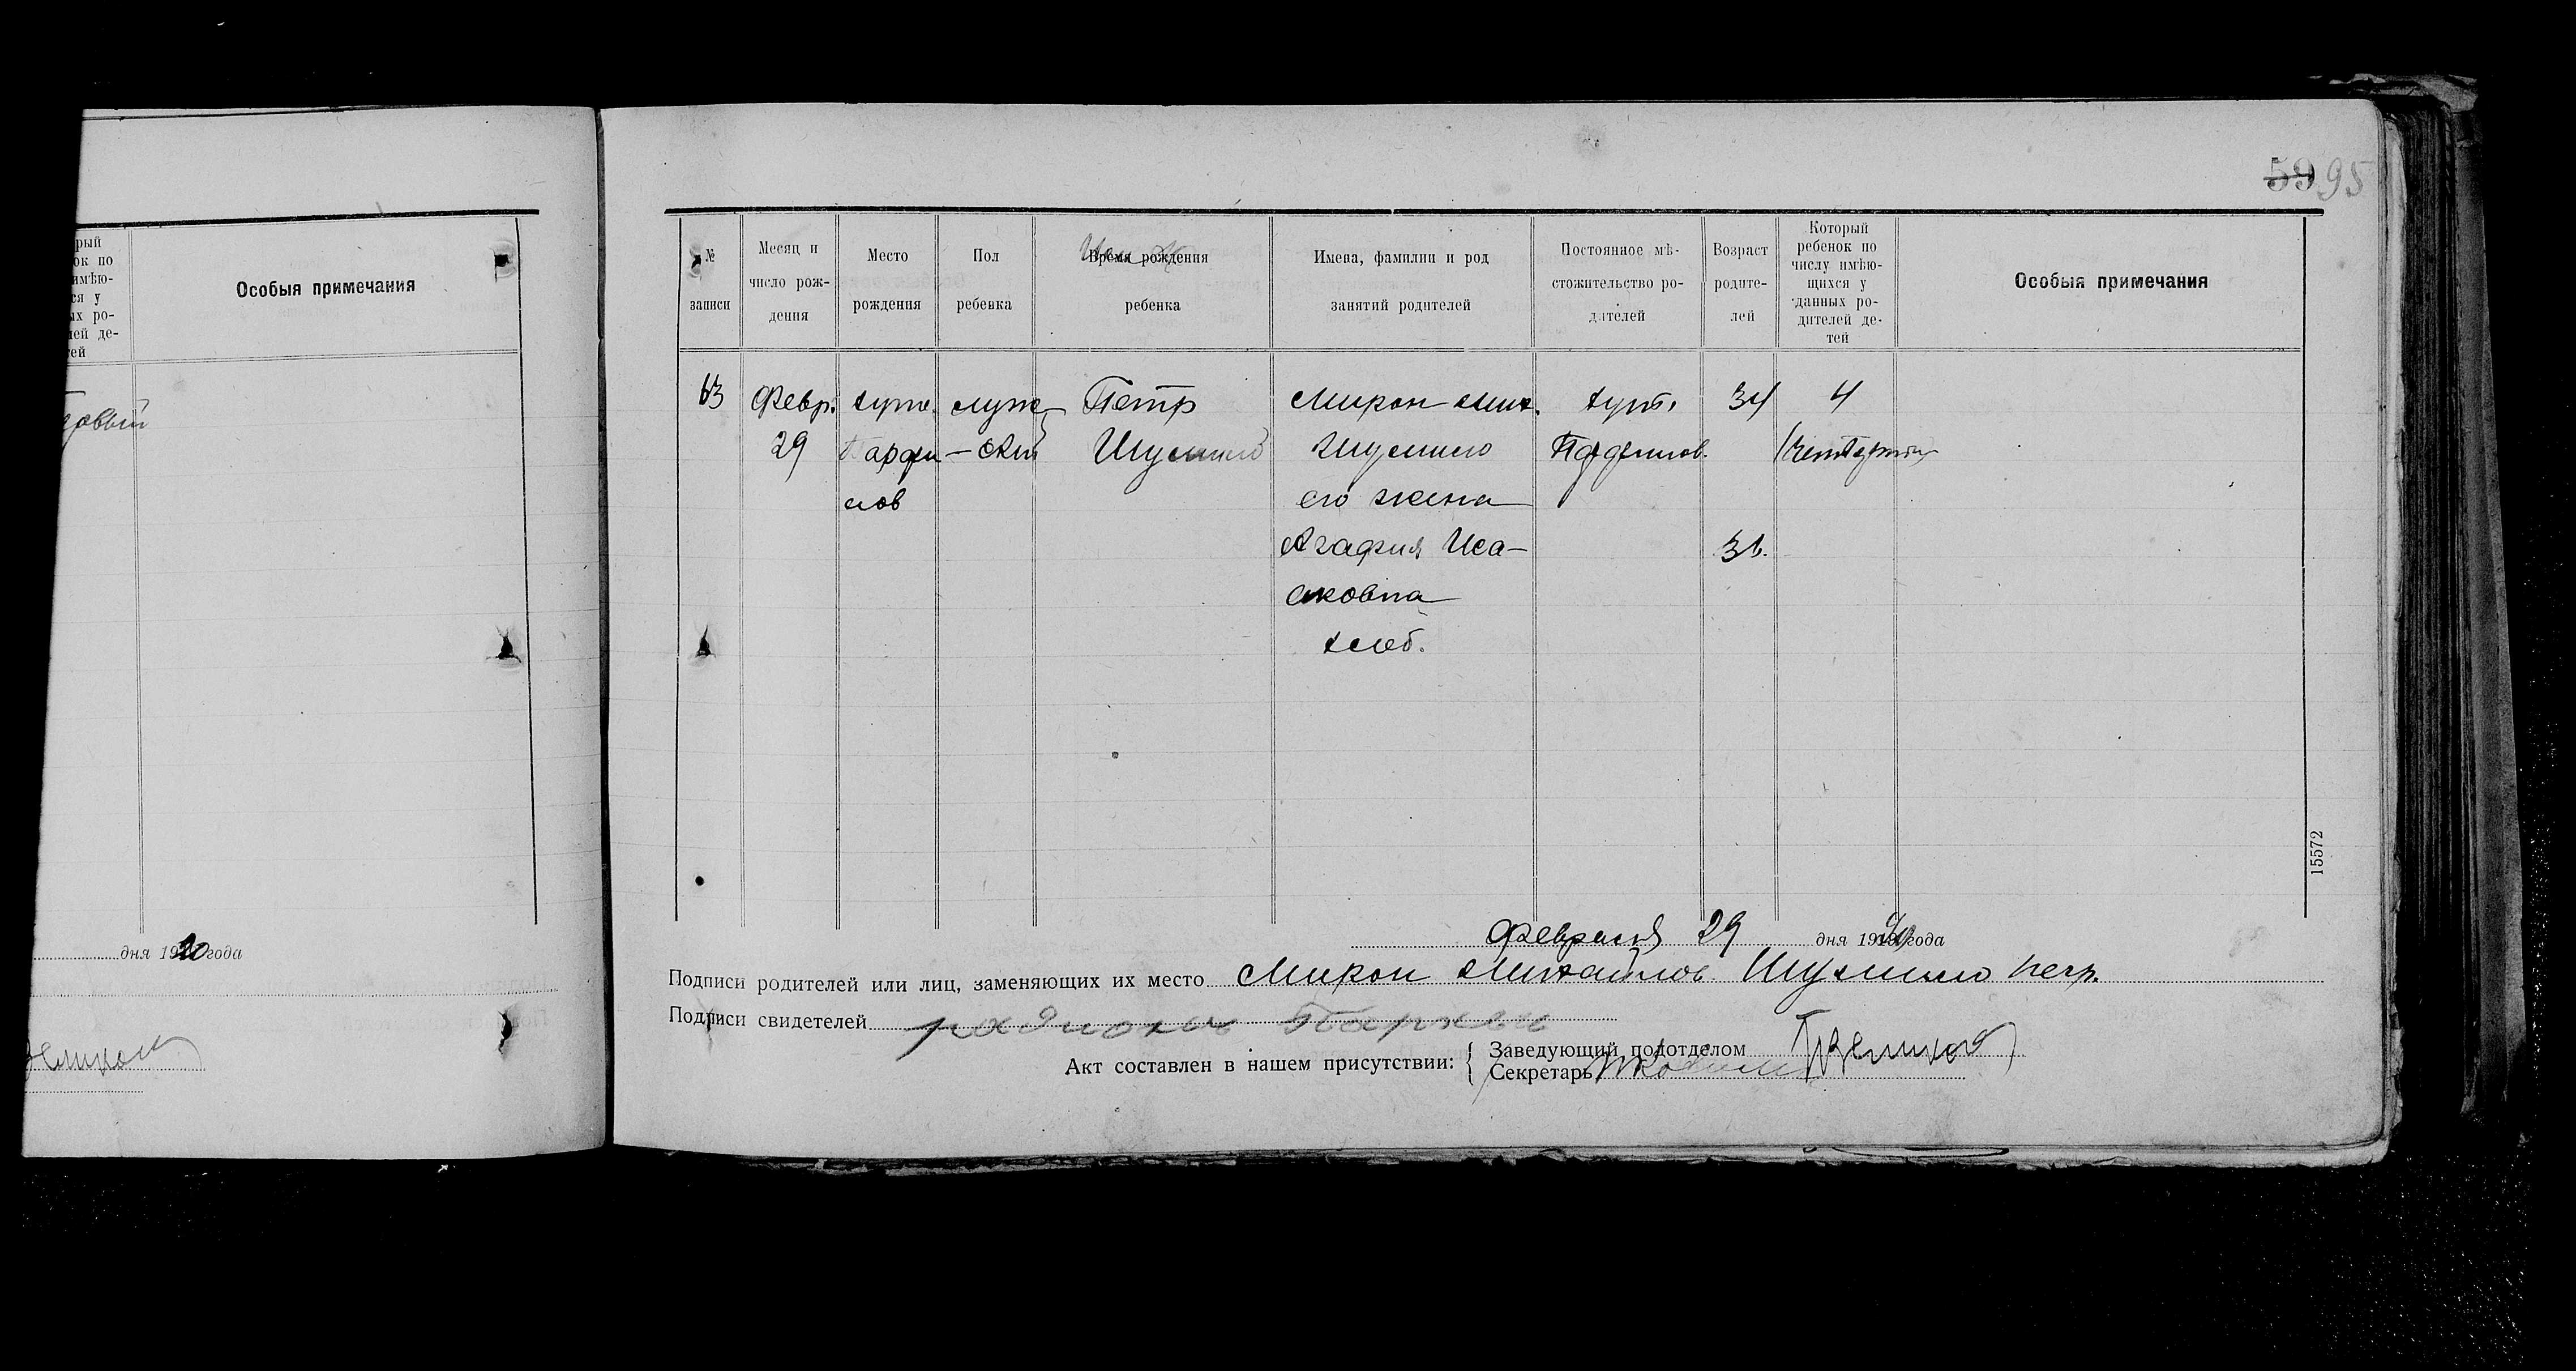 рый
ок по
имѣю-
ся у
их ро-
лей де-
тей
Особыя примечания
дня 1920 года
59 95
№ записи
Месяц и число рож- дения
Место рождения
Пол ребенка
Время рождения ребенка
Имена, фамилии и род занятий родителей
Постоянное мѣ- стожительство ро- дителей
Возраст родите- лей
Который ребенок по числу имѣю- щихся у данных ро- дителей де- тей
Особыя примечания
63 Февр. хут. муж- Петр Мирон Мих. хут. 34 4
29 Парфи - ский Шумило Шумило Парфилов. (четвертый)
лов его жена
Агафия Иса- 31.
аковна
хлеб.
15572
Февраля 29 дня 1920 года
Подписи родителей или лиц, заменяющих их место Мирон Михайлов Шумило негр.
Подписи свидетелей
Акт составлен в нашем присутствии:
Заведующий подотделом
Секретарь